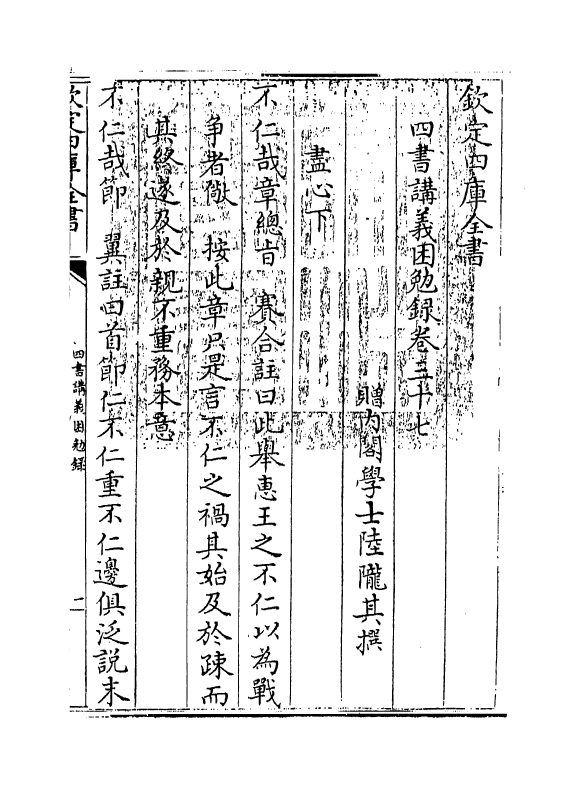 欽定四庫全書
四書講義困勉録卷三十七
贈内閣學士陸隴其撰
盡心下
不仁哉章總旨　賽合註曰此舉惠王之不仁以為戰
争者儆　按此章只是言不仁之禍其始及於疎而
其終遂及於親不重務本意
不仁哉節　翼註曰首節仁不仁重不仁邊俱泛説末
欽定四庫全書
四書講義困勉録
二